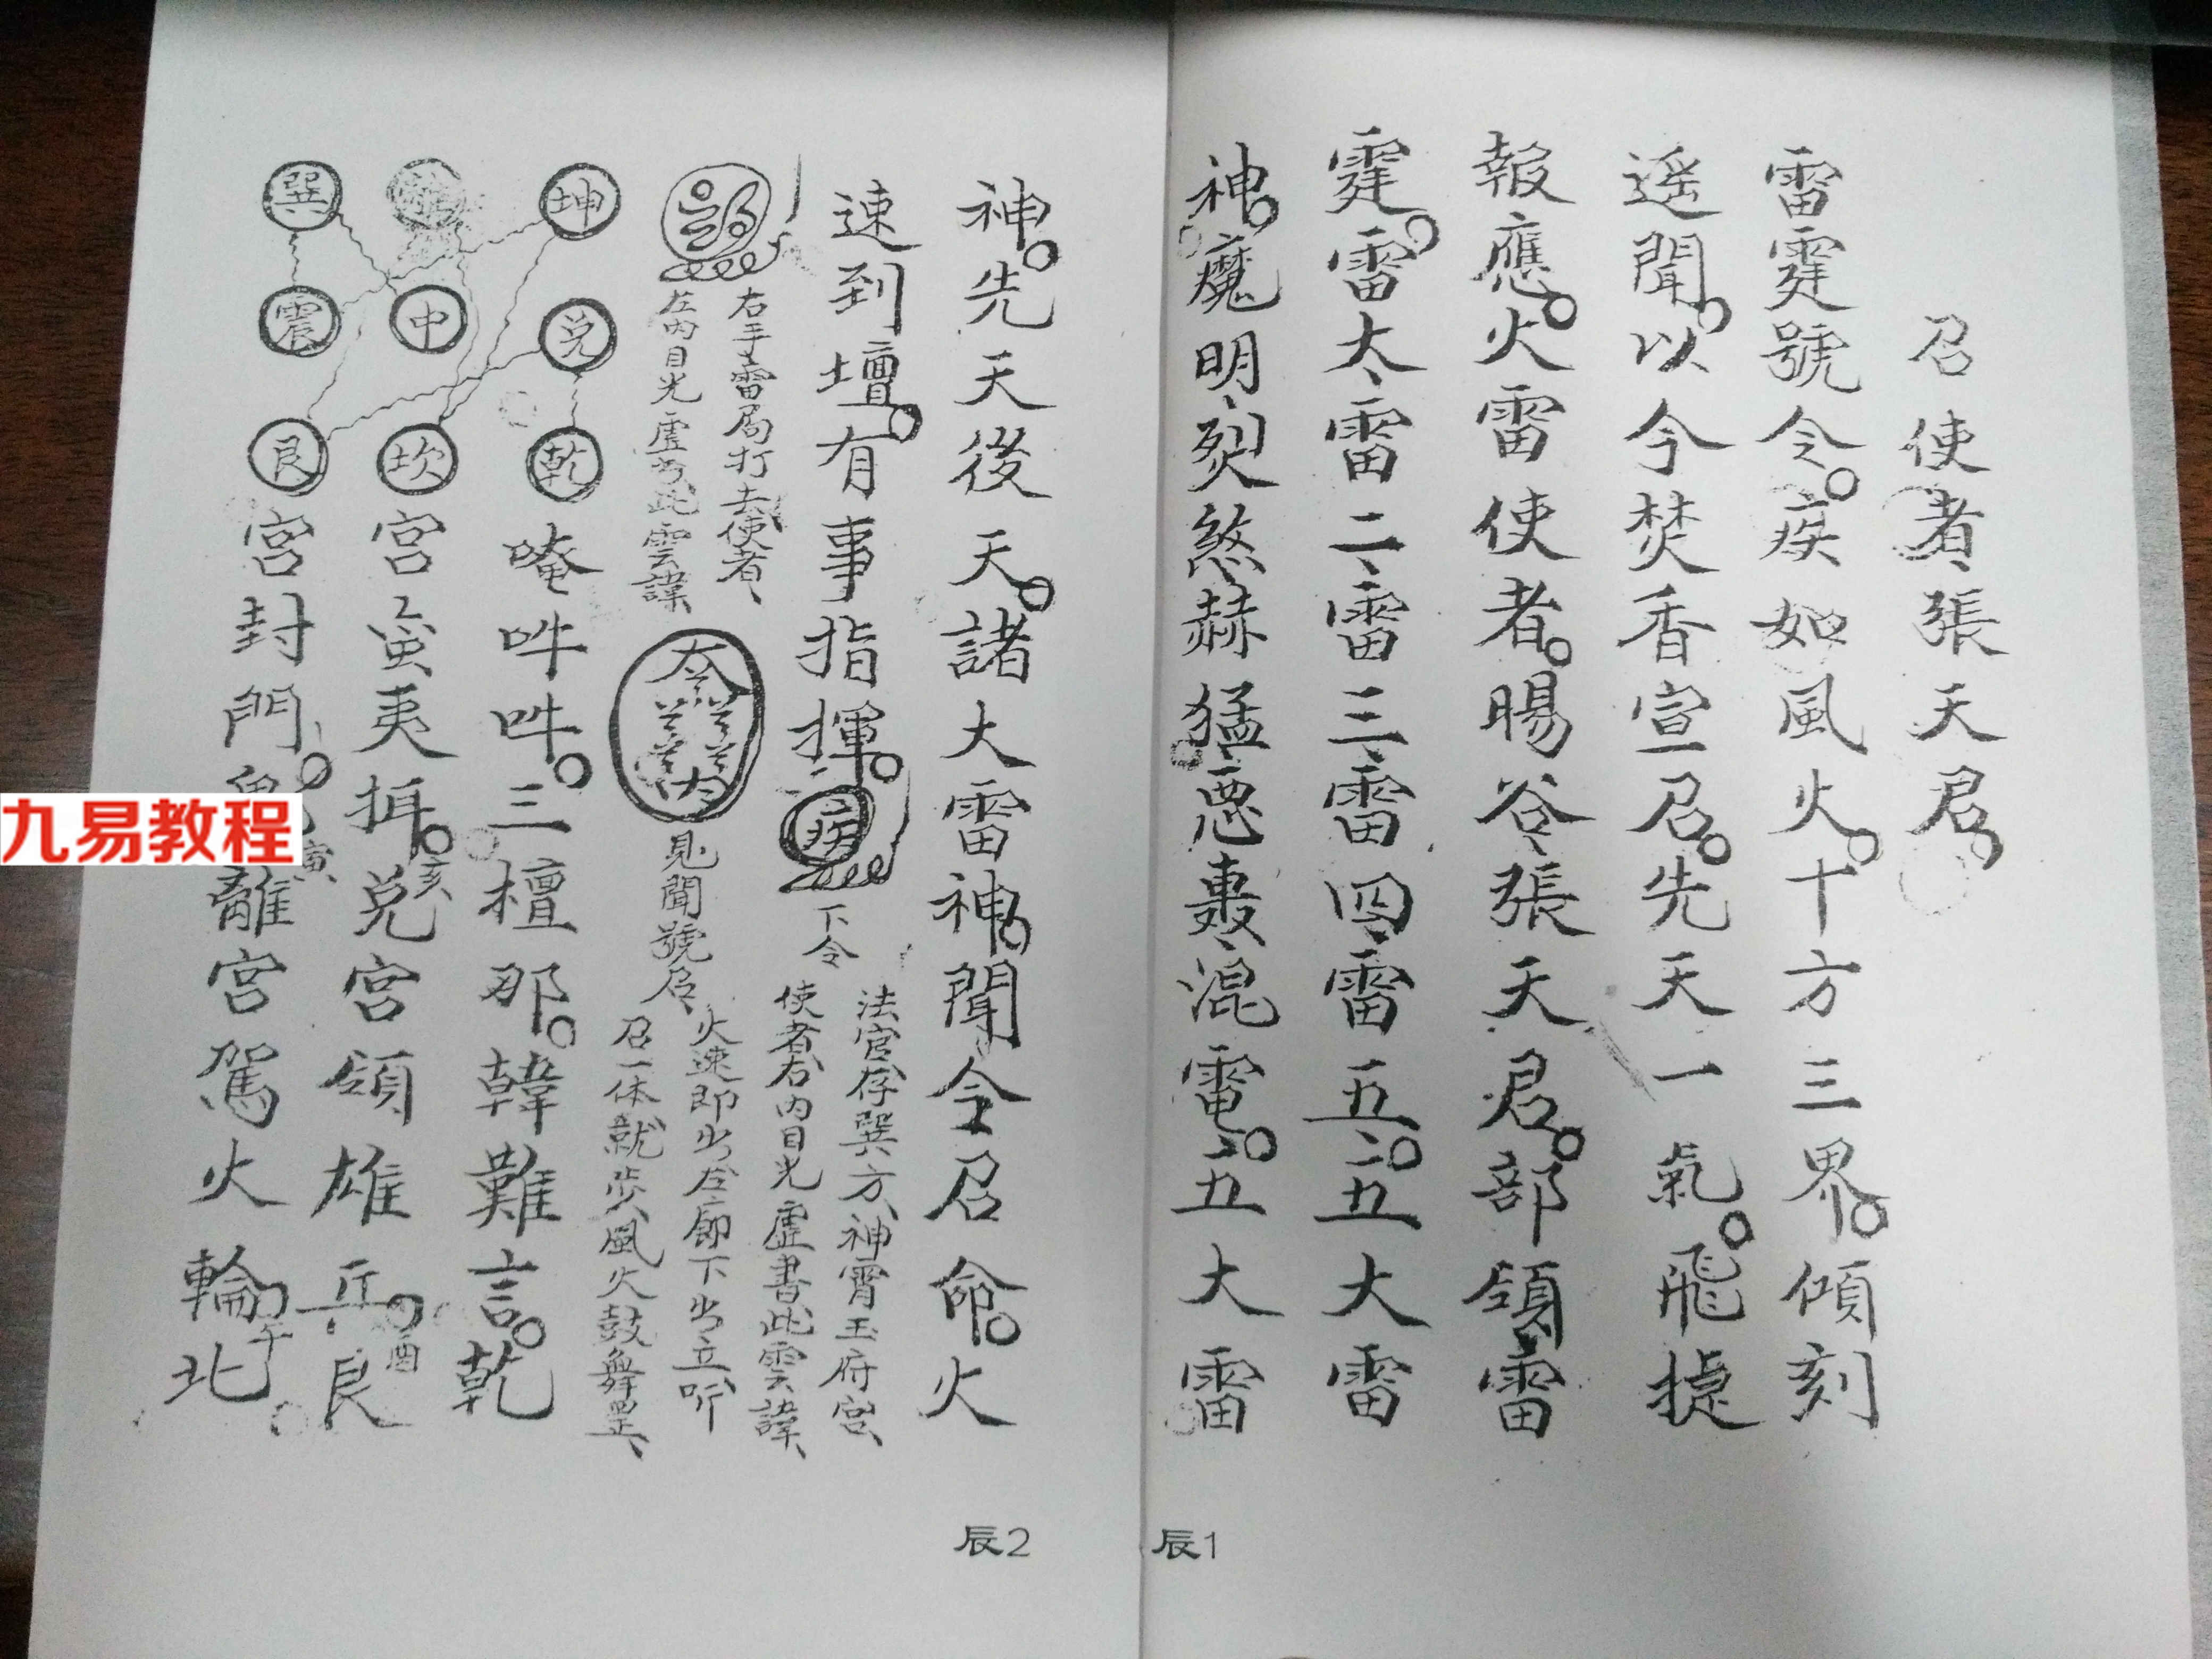 召使者張天君。
雷霆號令。疾如風火。十方三界。傾刻
遥聞。以今焚香宣召。先天一氣。飛捷
報應。火雷使者。暘谷張天君。部領雷
霆。雷太雷二雷三雷四雷五。五大雷
神。魔明烈煞赫猛惡轟混電。五大雷
神。先天後天。諸大雷神。聞令召命。火
速到壇。有事指揮。
疾
下令
法官存巽方、神霄玉府宫、
使者右内目光虚書此雲諱、
右手雷局打去使者、
左内目光虚书此雲諱
見聞號召、
火速即出左廊下出立听
召一体就步風火鼓舞罡、
坤
兑
乾
中
坎
巽
震
艮
唵吽吽。三檀那。韓難言。乾
宫夷挕。亥兑宫領雄兵。酉艮
宫封門。寅離宫駕火輪。午北
辰1
辰2
九易教程